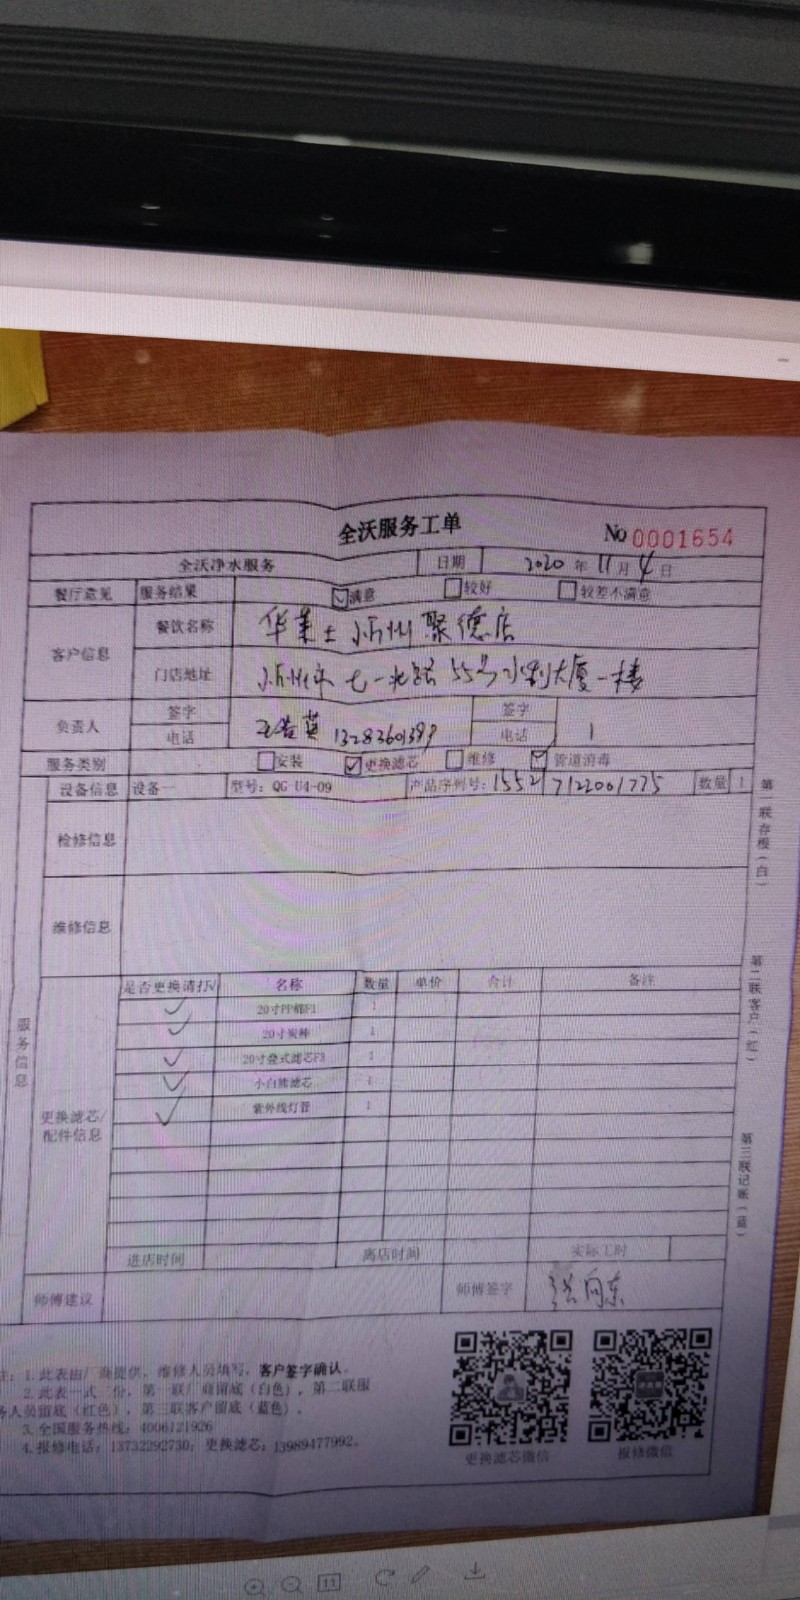 全沃服务工单 No 0001654
全沃净水服务 日期 2020 年 11 月 4 日
餐厅意见 服务结果 满意 较好 较差不满意
客户信息 餐饮名称 华莱士忻州聚德店
门店地址 忻州市七一北路55号水利大厦一楼
负责人 签字 签字
电话 13283601389 电话
服务类别 安装 更换滤芯 维修 管道消毒
设备信息 设备一 型号：QG U4-09 产品序列号：155217122061775 数量 1
检修信息
维修信息
服务信息
是否更换请打√ 名称 数量 单价 合计 备注
✓ 20寸PP棉F1 1
✓ 20寸炭棒 1
✓ 20寸叠式滤芯F3 1
✓ 小白熊滤芯 1
✓ 紫外线灯管 1
更换滤芯/
配件信息
进店时间 离店时间 实际工时
师傅建议 师傅签字 张向东
注：1.此表由厂商提供，维修人员填写，客户签字确认。
2.此表一式三份，第一联厂商留底（白色），第二联服
务人员留底（红色），第三联客户留底（蓝色）。
3.全国服务热线：4006121926
4.报修电话：13732292730；更换滤芯：13989477992。
更换滤芯微信 报修微信
第一联存根（白）
第二联客户（红）
第三联记账（蓝）